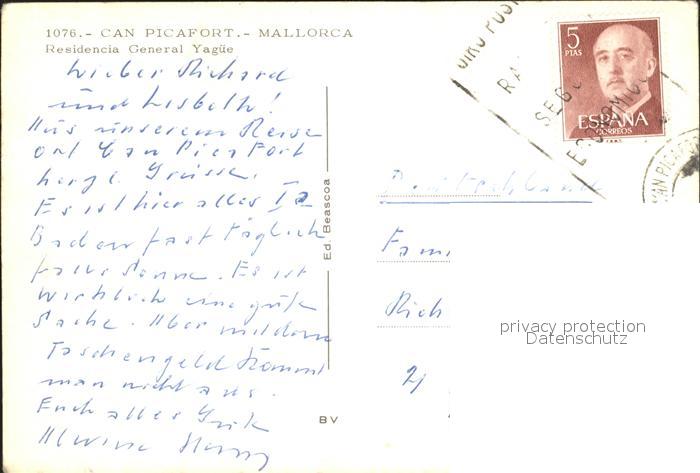 1076.- CAN PICAFORT.- MALLORCA
Residencia General Yagüe
Lieber Richard
und Lisbeth!
Aus unserem Reise
ort Can Picafort
herzl. Grüsse.
Es ist hier alles Ia
Baden fast täglich
falls Sonne. Es ist
wirklich eine gute
Sache. Aber mit dem
Taschengeld kommt
man nicht aus.
Euch alles Gute
Alwine
Ed. Beascoa
BV
5
PTAS
ESPAÑA
CORREOS
GIRO POST
RA
SEGU
ECONOMICO
CAN PICAFO
Deutschland
Fami
Rich
21
privacy protection
Datenschutz